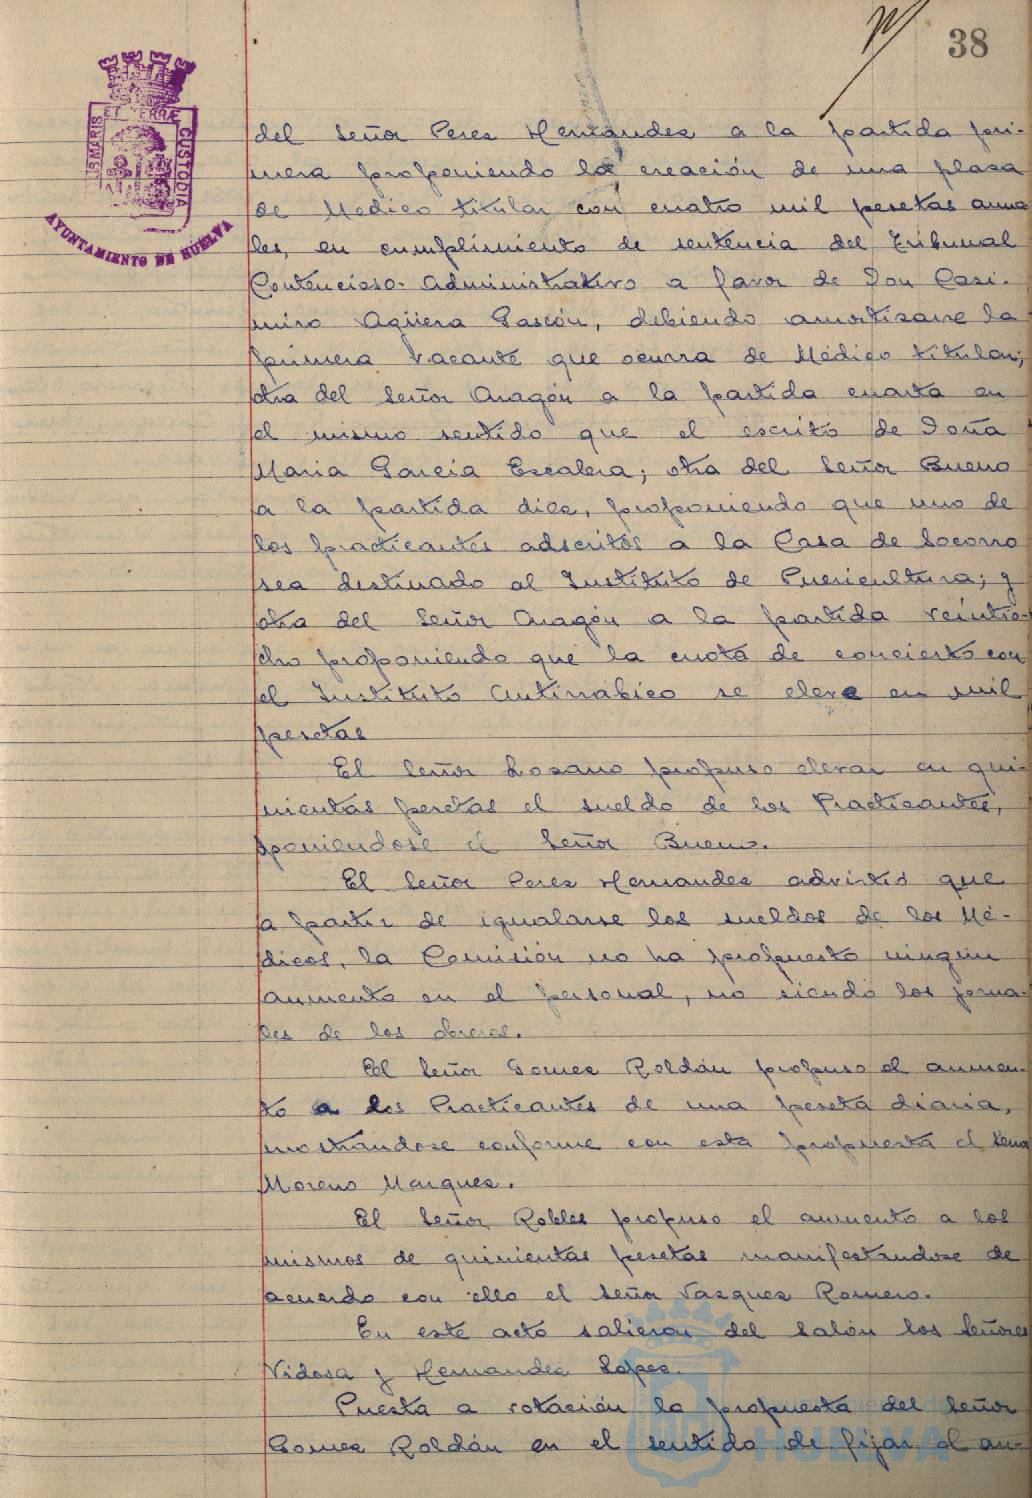 38
ET TERRÆ
US MARIS
CUSTODIA
AYUNTAMIENTO DE HUELVA
del Señor Perez Hernandez a la partida pri-
mera proponiendo la creación de una plaza
de Medico titular con cuatro mil pesetas anua
les, en cumplimiento de sentencia del Tribunal
Contencioso-Administrativo a favor de Don Casi-
miro Agüera Gascón, debiendo amortizarse la
primera vacante que ocurra de Médico titular;
otra del Señor Aragón a la partida cuarta en
el mismo sentido que el escrito de Doña
Maria Garcia Escalera; otra del Señor Bueno
a la partida diez, proponiendo que uno de
los practicantes adscritos a la Casa de Socorro
sea destinado al Instituto de Puericultura; y
otra del Señor Aragón a la partida veintio-
cho proponiendo que la cuota de concierto con
el Instituto Antirrábico se eleve en mil
pesetas
El Señor Lozano propuso elevar en qui-
nientas pesetas el sueldo de los Practicantes,
oponiendose el Señor Bueno.
El Señor Perez Hernandez advirtió que
a partir de igualarse los sueldos de los Mé-
dicos, la Comisión no ha propuesto ningun
aumento en el personal, no siendo los jorna-
les de los obreros.
El Señor Gomez Roldán propuso el aumen-
to a los Practicantes de una peseta diaria,
mostrandose conforme con esta propuesta el Señor
Moreno Marquez.
El Señor Robles propuso el aumento a los
mismos de quinientas pesetas manifestandose de
acuerdo con ello el Señor Vazquez Romero.
En este acto salieron del salón los Señores
Vidosa y Hernandez Lopez.
Puesta a votación la propuesta del Señor
Gomez Roldán en el sentido de fijar el au-
HUELVA